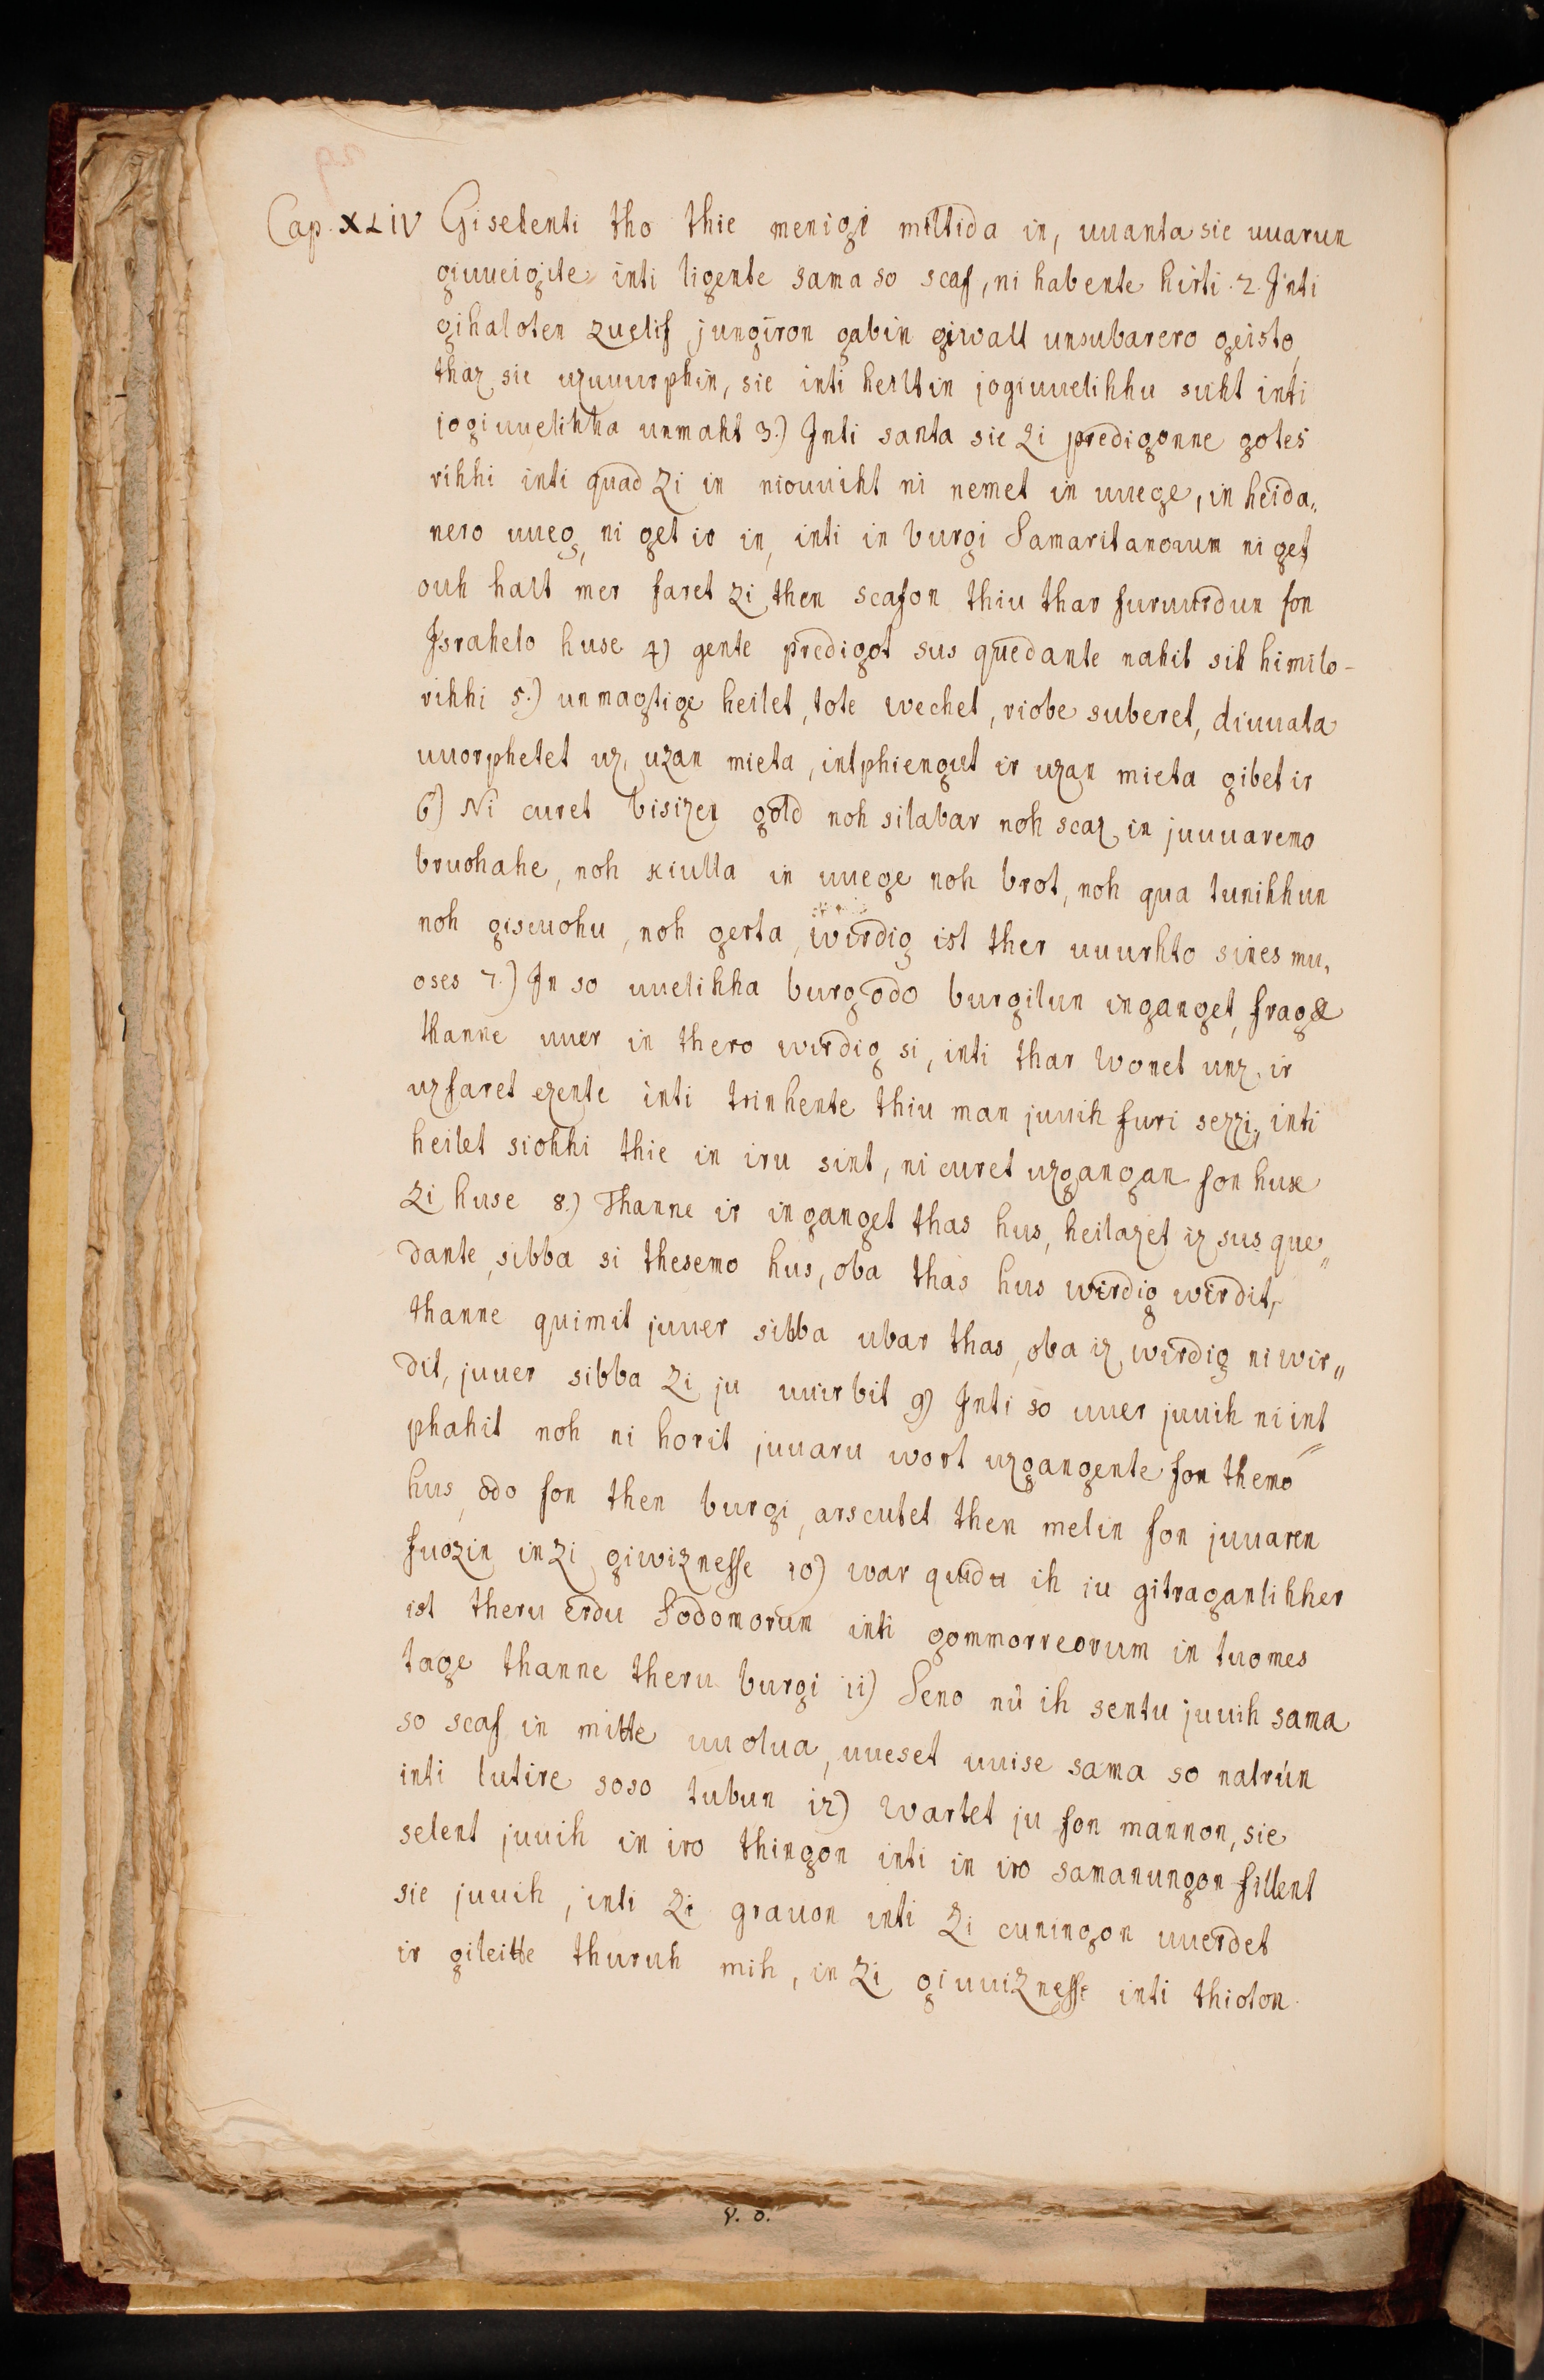 Cap. XLIV Gisehenti tho thie menigi miltida in, uuanta sie uuarun
giuueigite inti ligente sama so scaf, ni habente hirti. 2. Inti
gihaloten zuelif jungiron gab in giwalt unsubarero geisto,
thaz sie uzuuurphin, sie inti heiltin jogiuuelihhu suht inti
jogiuuelihha unmaht 3.) Inti santa sie zi predigonne gotes
rihhi inti quad zi in niouuiht ni nemet in uuege, in heida„
nero uueg, ni get ir in, inti in burgi Samaritanorum ni get,
ouh halt mer faret zi then scafon thiu thar furuurdun fon
Israhelo huse 4) gente predigot sus quedante nahit sih himilo-
rihhi 5.) unmagtige heilet, tote wechet, riobe suberet, diuuala
uuorphetet uz, uzan mieta, intphienget ir uzan mieta gibet ir
6) Ni curet bisizen gold noh silabar noh scaz in juuuaremo
bruohahe, noh kiulla in uuege noh brot, noh qua tunihhun
noh giscuohu, noh gerta, wirdig ist ther uuurhto sines mu„
oses 7.) In so uuelihha burg odo burgilun inganget, fraget
thanne uuer in thero wirdig si, inti thar wonet unz, ir
uzfaret ezente inti trinhente thiu man juuih furi sezzi, inti
heilet siohhi thie in iru sint, ni curet uzgangan fon huse
zi huse 8.) Thanne ir inganget thas hus, heilazet iz sus que„
dante, sibba si thesemo hus, oba thas hus wirdig wirdit,
thanne quimit juuer sibba ubar thas, oba iz wirdig ni wir„
dit, juuer sibba zi ju uuirbit 9) Inti so uuer juuih ni int„
phahit noh ni horit juuaru wort uzgangente fon themo
hus, odo fon then burgi, arscutet then melm fon juuaren
fuozin in zi giwiznesse 10) war quidu ih iu gitraganlihher
ist theru erdu Sodomorum inti gommorreorum in tuomes
tage thanne theru burgi 11) Seno nu ih sentu juuih sama
so scaf in mitte uuolua, uueset uuise sama so natrún
inti lutire soso tubun 12) Wartet ju fon mannon, sie
selent juuih in iro thingon inti in iro samanungon fillent
sie juuih, inti zi grauon inti zi cuningon uuerdet
ir gileitte thuruh mih, in zi giuuiznesse inti thioton.
V. O.